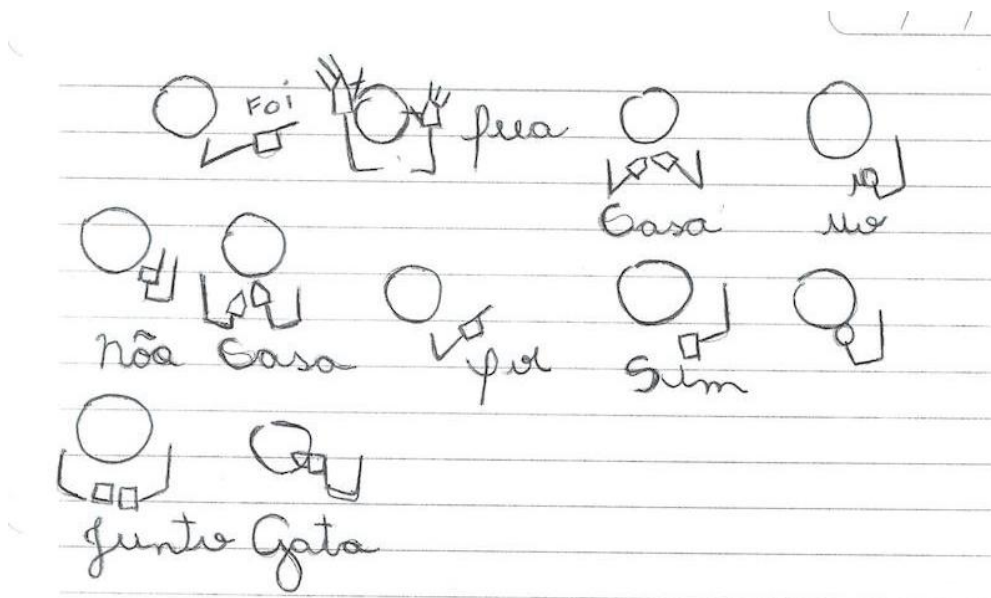 Foi fua
Casa
nõa Casa Sim
Junto Gata